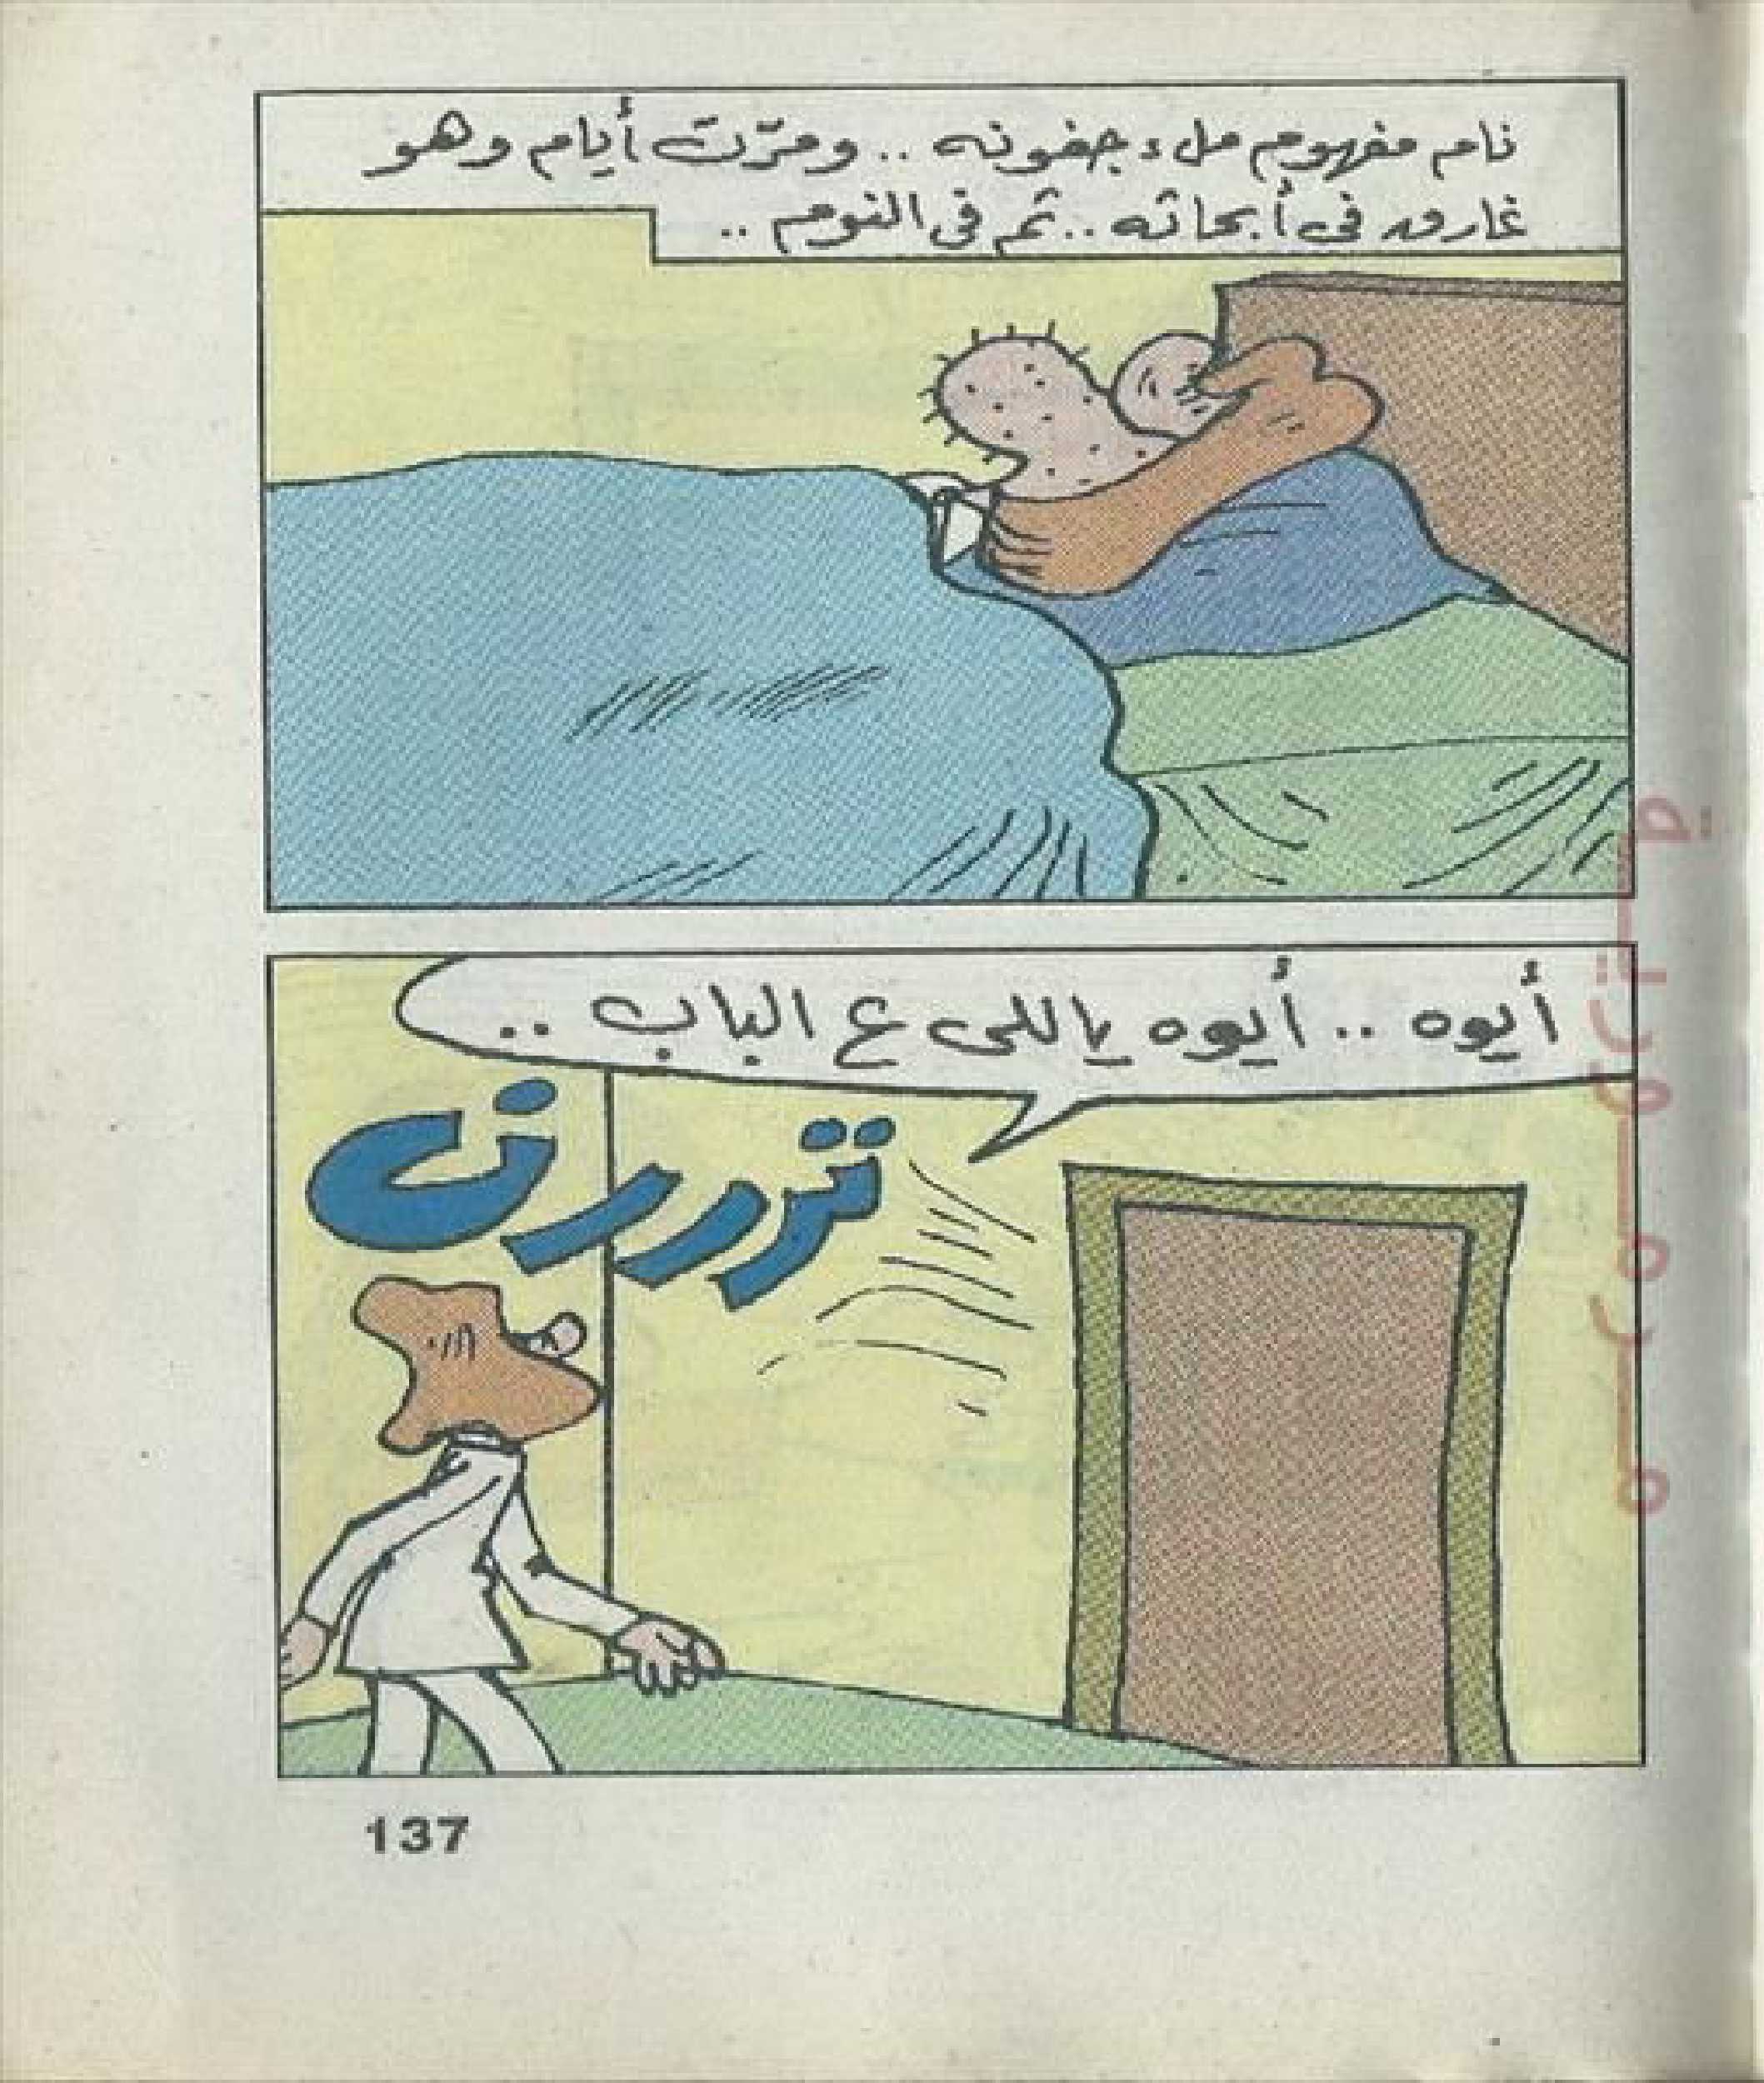 نام مفهوم ملء جفونه .. ومرّت أيام وهو
غارق فى أبحاثه .. ثم فى النوم ..
أيوه .. أيوه ياللى ع الباب ..
تررررن
137